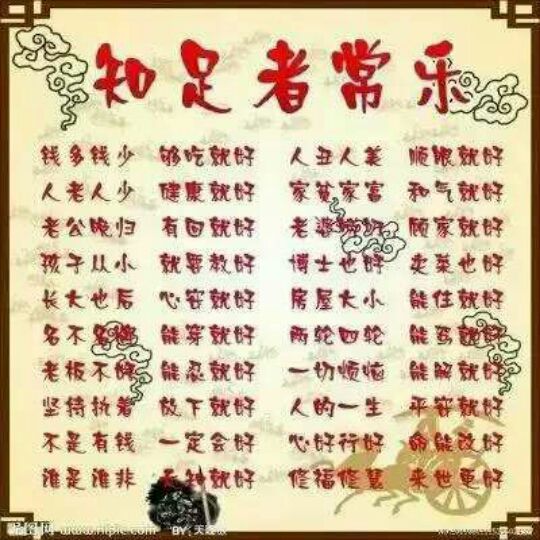 知足者常乐
钱多钱少 够吃就好 人丑人美 顺眼就好
人老人少 健康就好 家贫家富 和气就好
老公晚归 有回就好 老婆唠叨 顾家就好
孩子从小 就要教好 博士也好 卖菜也好
长大也后 心安就好 房屋大小 能住就好
名不名牌 能穿就好 两轮四轮 能驾就好
老板不好 能忍就好 一切烦恼 能解就好
坚持执着 放下就好 人的一生 平安就好
不是有钱 一定会好 心好行好 命能改好
谁是谁非 天知就好 修福修慧 来世更好
昵图网 www.nipic.com BY: